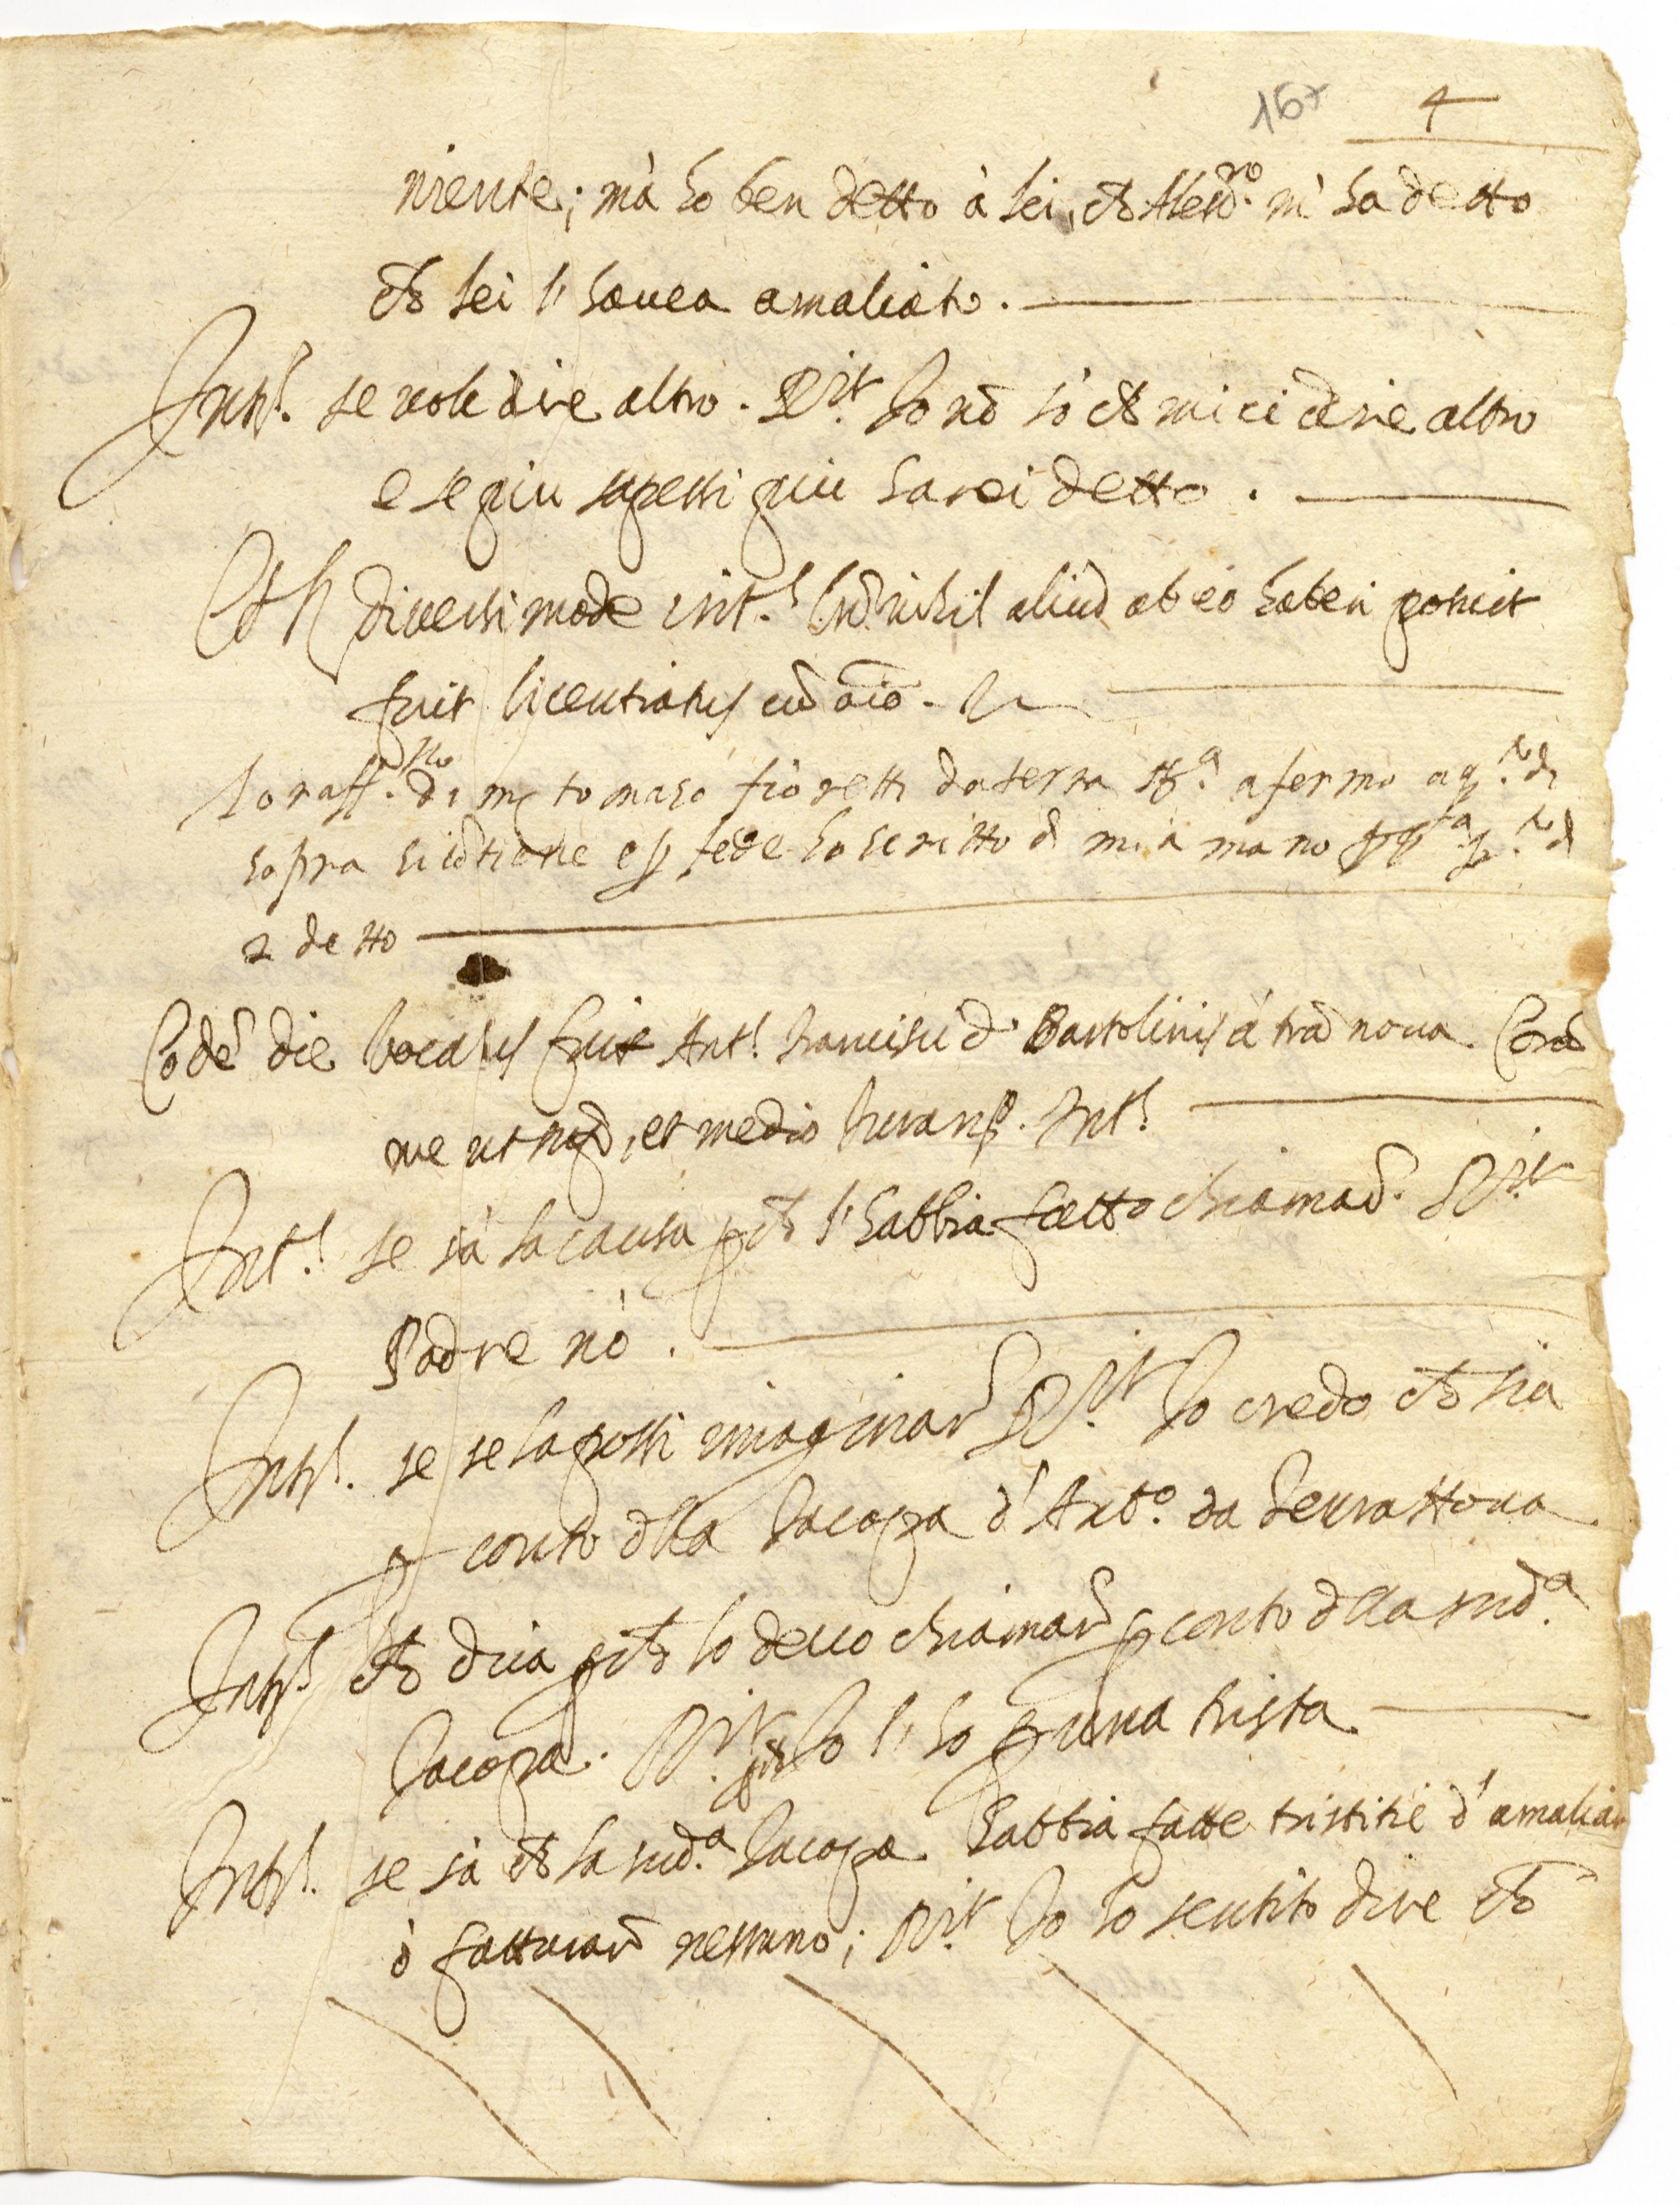 167 4
niente; mà ho ben detto à lei, che Aless.ro m' ha detto
che lei l' havea amaliato.
Int.s se vole dire altro. R.it Io nō sò che mi ci dire altro
e se piu sapessi piu harei detto.
Et diversi mode int.s cū nihil aliud ab eo haberi potuit
fuit licentiatus cū aīo.
Io raff.llo di m tomaso fioretti da terra a fermo a q.to di
sopra si ētiene e p fede ho scritto d mia mano d
2 detto
Eodē die vocatus fuit Ant.s francisci d Bartolinis à trā nova. Corā
me ut sup, et medio Iuram.to Int.s
Int.s se sà la causa p che l' habbia fatto chiamar. R.it
Padre nò.
Int.s se se la possi imaginar R.it Io credo che sia
p conto dlla Iacopa d' Ant.o da Terranova
Int.s che dica p che lo devo chiamar p conto dlla sud.a
Iacopa. R.it p che Io l' ho p una trista
Int.s se sà che la sud.a Iacopa habbia fatte tristitie d' amaliar
ò fatturar nessuno; R.it Io ho sentito dire che